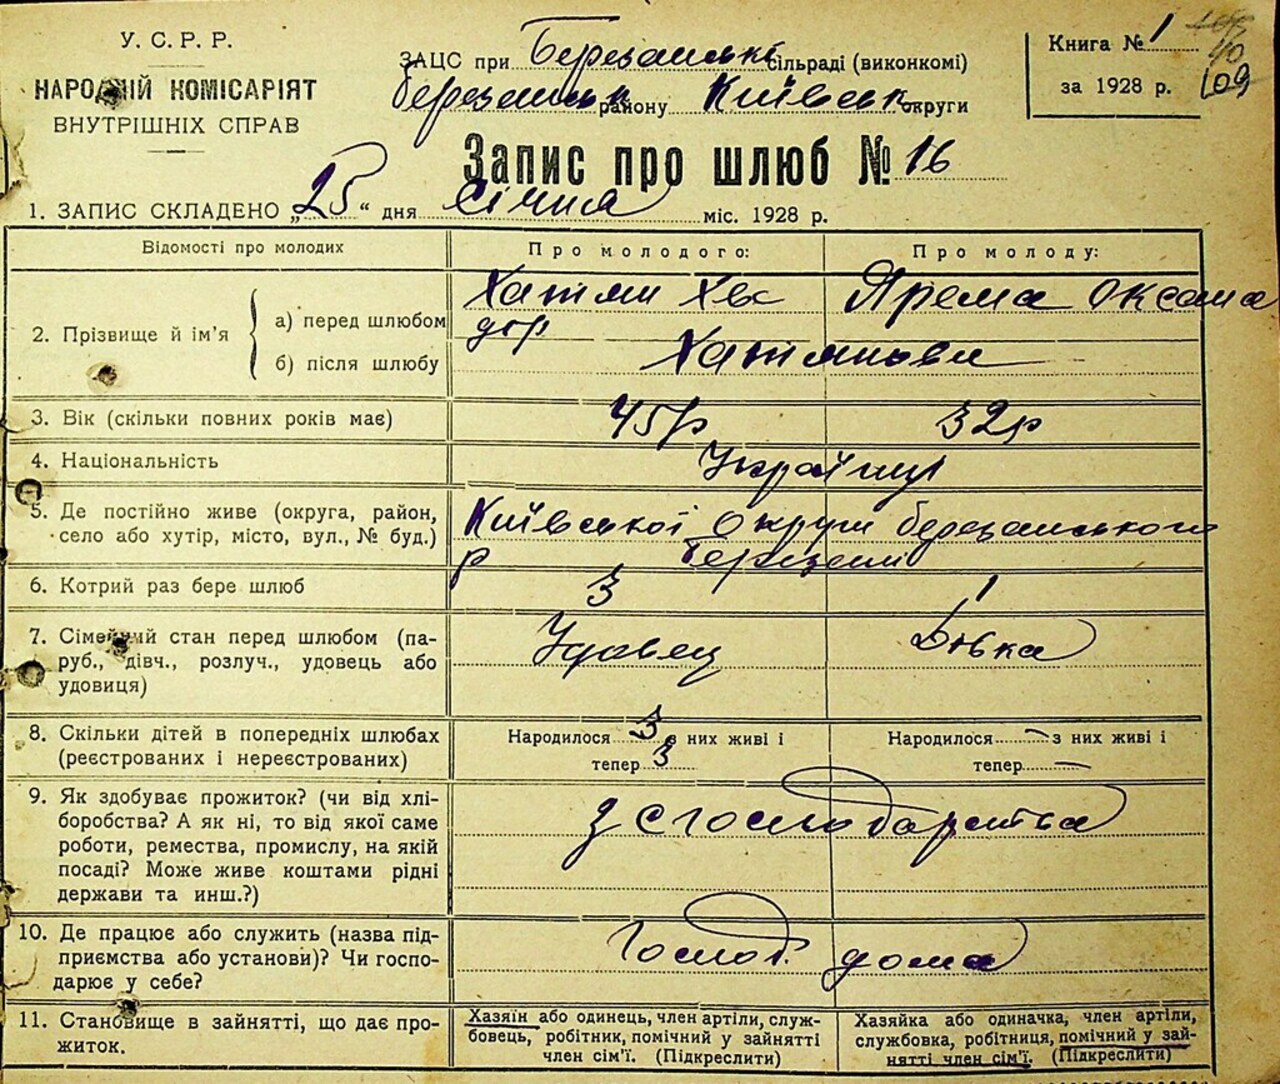 У. С. Р. Р.
НАРОДНІЙ КОМІСАРІЯТ
ВНУТРІШНІХ СПРАВ
ЗАЦС при Березанські сільраді (виконкомі)
березанськ району Київськ округи
Книга № 1
за 1928 р.
109
Запис про шлюб № 16
1. ЗАПИС СКЛАДЕНО „25“ дня січня міс. 1928 р.
Відомості про молодих
Про молодого:
Про молоду:
2. Прізвище й ім’я
а) перед шлюбом
Хатян Хве
дор
Ярема Оксана
б) після шлюбу
Хатянови
3. Вік (скільки повних років має)
45р
32р
4. Національність
Українці
5. Де постійно живе (округа, район,
село або хутір, місто, вул., № буд.)
Київської округи березанського
р Березані
6. Котрий раз бере шлюб
3
1
7. Сімейний стан перед шлюбом (па-
руб., дівч., розлуч., удовець або
удовиця)
Удовец
Дівка
8. Скільки дітей в попередніх шлюбах
(реєстрованих і нереєстрованих)
Народилося 3 з них живі і
тепер 3
Народилося — з них живі і
тепер —
9. Як здобуває прожиток? (чи від хлі-
боробства? А як ні, то від якої саме
роботи, ремества, промислу, на якій
посаді? Може живе коштами рідні
держави та инш.?)
з с господарства
10. Де працює або служить (назва під-
приємства або установи)? Чи госпо-
дарює у себе?
Господ. дома
11. Становище в зайнятті, що дає про-
житок.
Хазяїн або одинець, член артіли, служ-
бовець, робітник, помічний у зайнятті
член сім’ї. (Підкреслити)
Хазяйка або одиначка, член артіли,
службовка, робітниця, помічний у зай-
нятті член сім’ї. (Підкреслити)